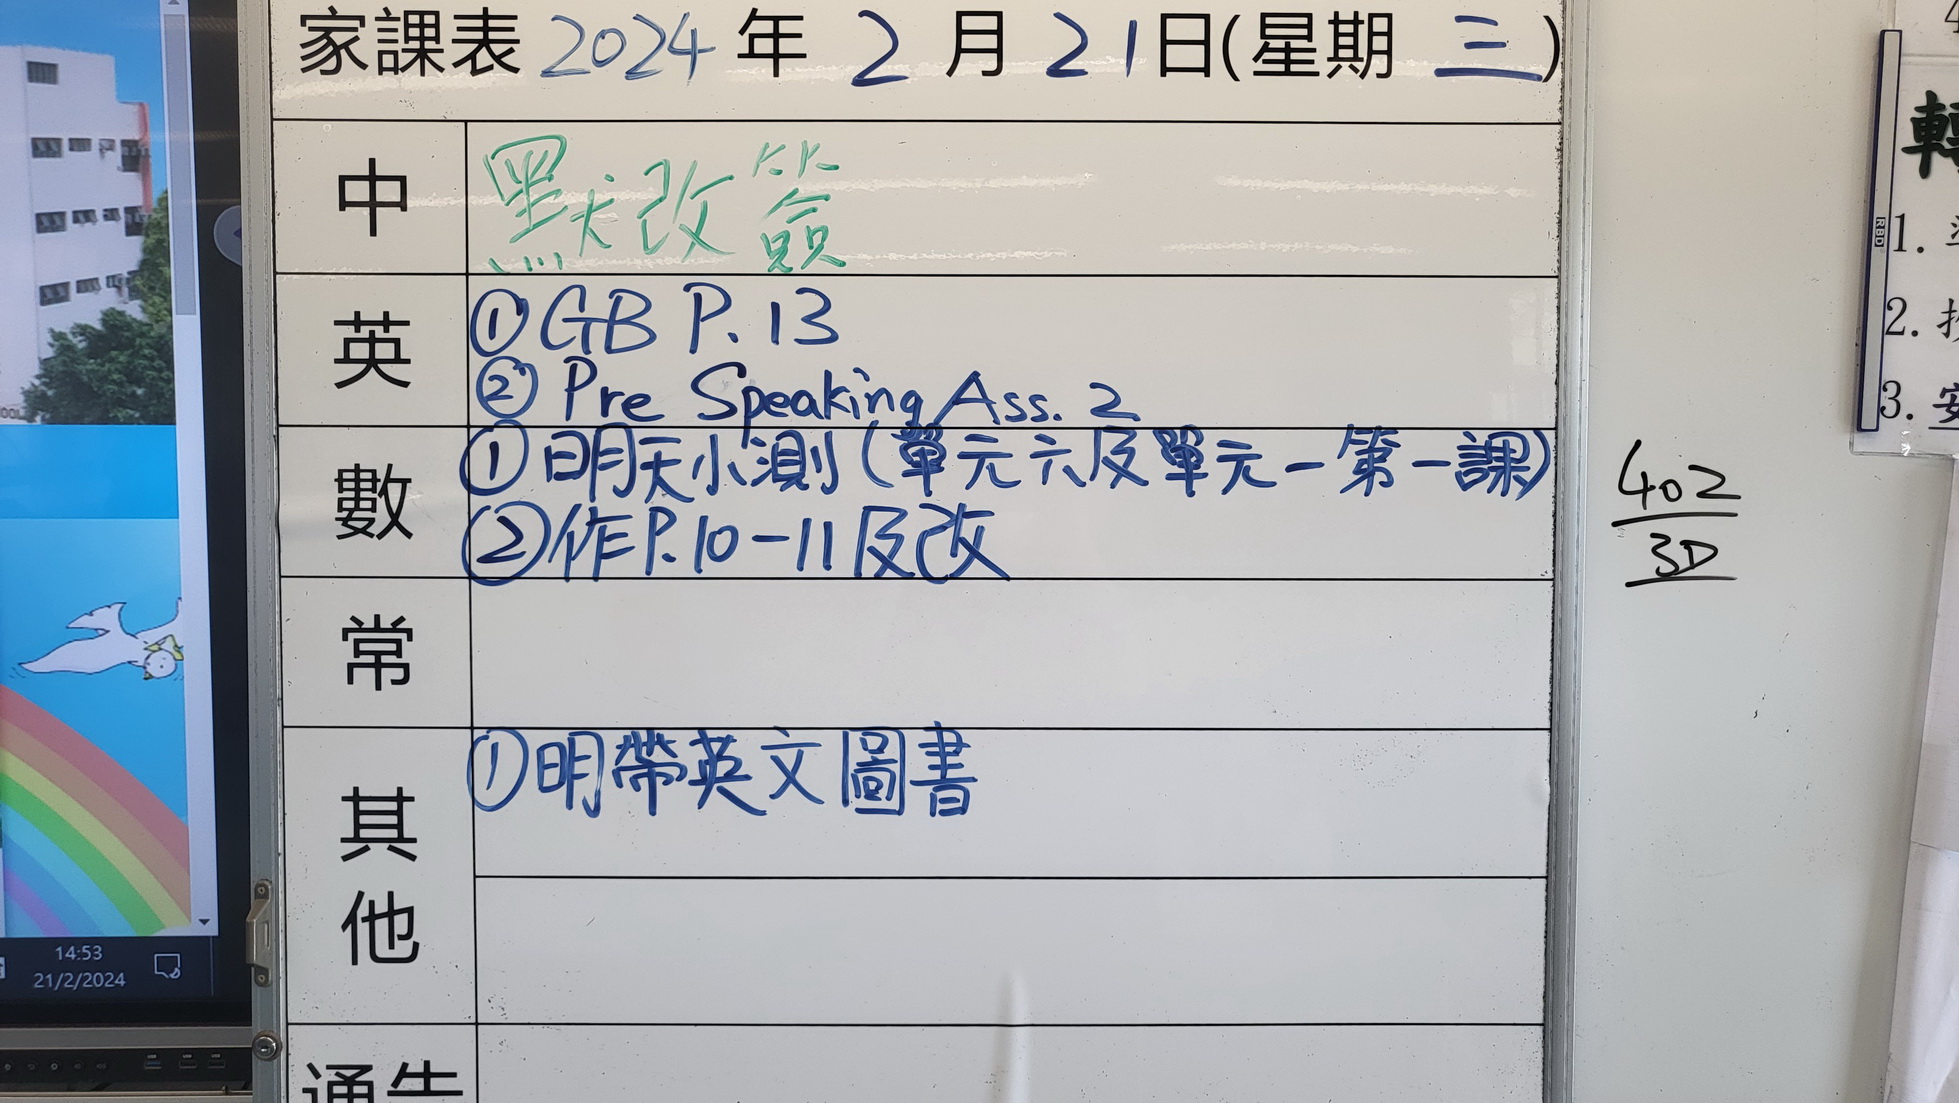 家課表 2024 年 2 月 21 日(星期 三)
中
默改簽
英
① GB P. 13
② Pre Speaking Ass. 2
數
① 明天小測(單元六及單元一第一課)
② 作P.10-11及改
常
其他
① 明帶英文圖書
通告
402
3D
轉
1.
2.
3. 安
14:53
21/2/2024